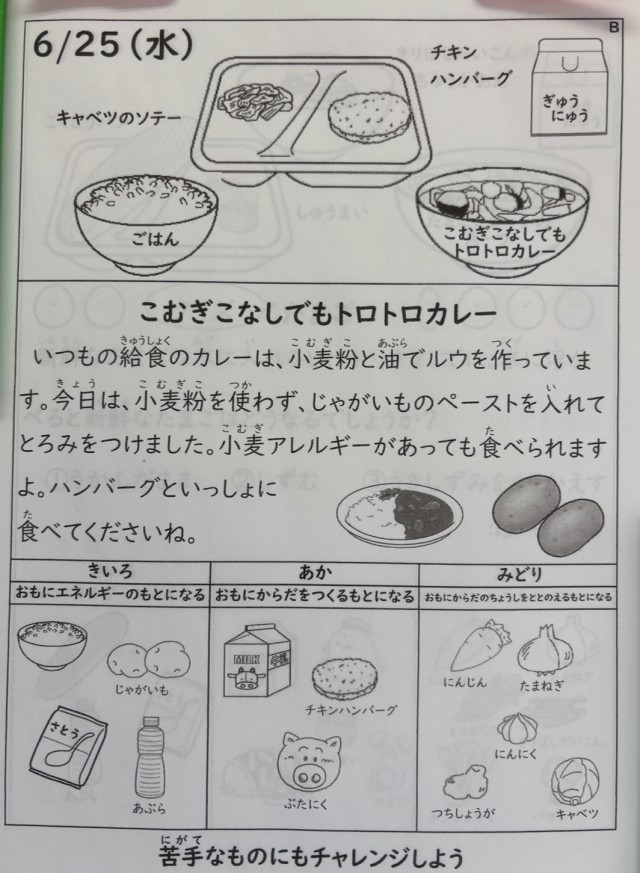 B
6/25（水）
チキン
ハンバーグ
ぎゅう
にゅう
キャベツのソテー
ごはん
こむぎこなしでも
トロトロカレー
こむぎこなしでもトロトロカレー
いつもの給食のカレーは、小麦粉と油でルウを作っていま
す。今日は、小麦粉を使わず、じゃがいものペーストを入れて
とろみをつけました。小麦アレルギーがあっても食べられます
よ。ハンバーグといっしょに
食べてくださいね。
きいろ
あか
みどり
おもにエネルギーのもとになる
おもにからだをつくるもとになる
おもにからだのちょうしをととのえるもとになる
じゃがいも
さとう
あぶら
MILK
チキンハンバーグ
ぶたにく
にんじん
たまねぎ
にんにく
つちしょうが
キャベツ
苦手なものにもチャレンジしよう